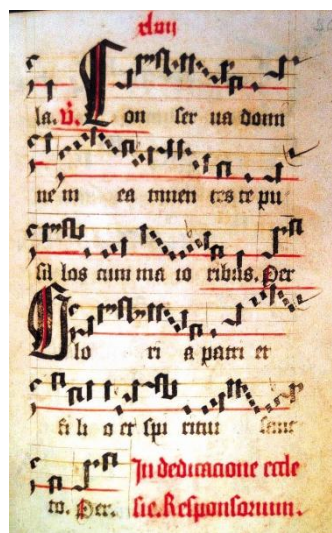 xlvii
la. V. Con ser va domi
ne in ea timen tes te pu
sil los cum ma io ribus. Per
Glo ri a patri et
fi li o et spi ritui sanc
to. Per. In dedicacione eccle
sie. Responsorium.